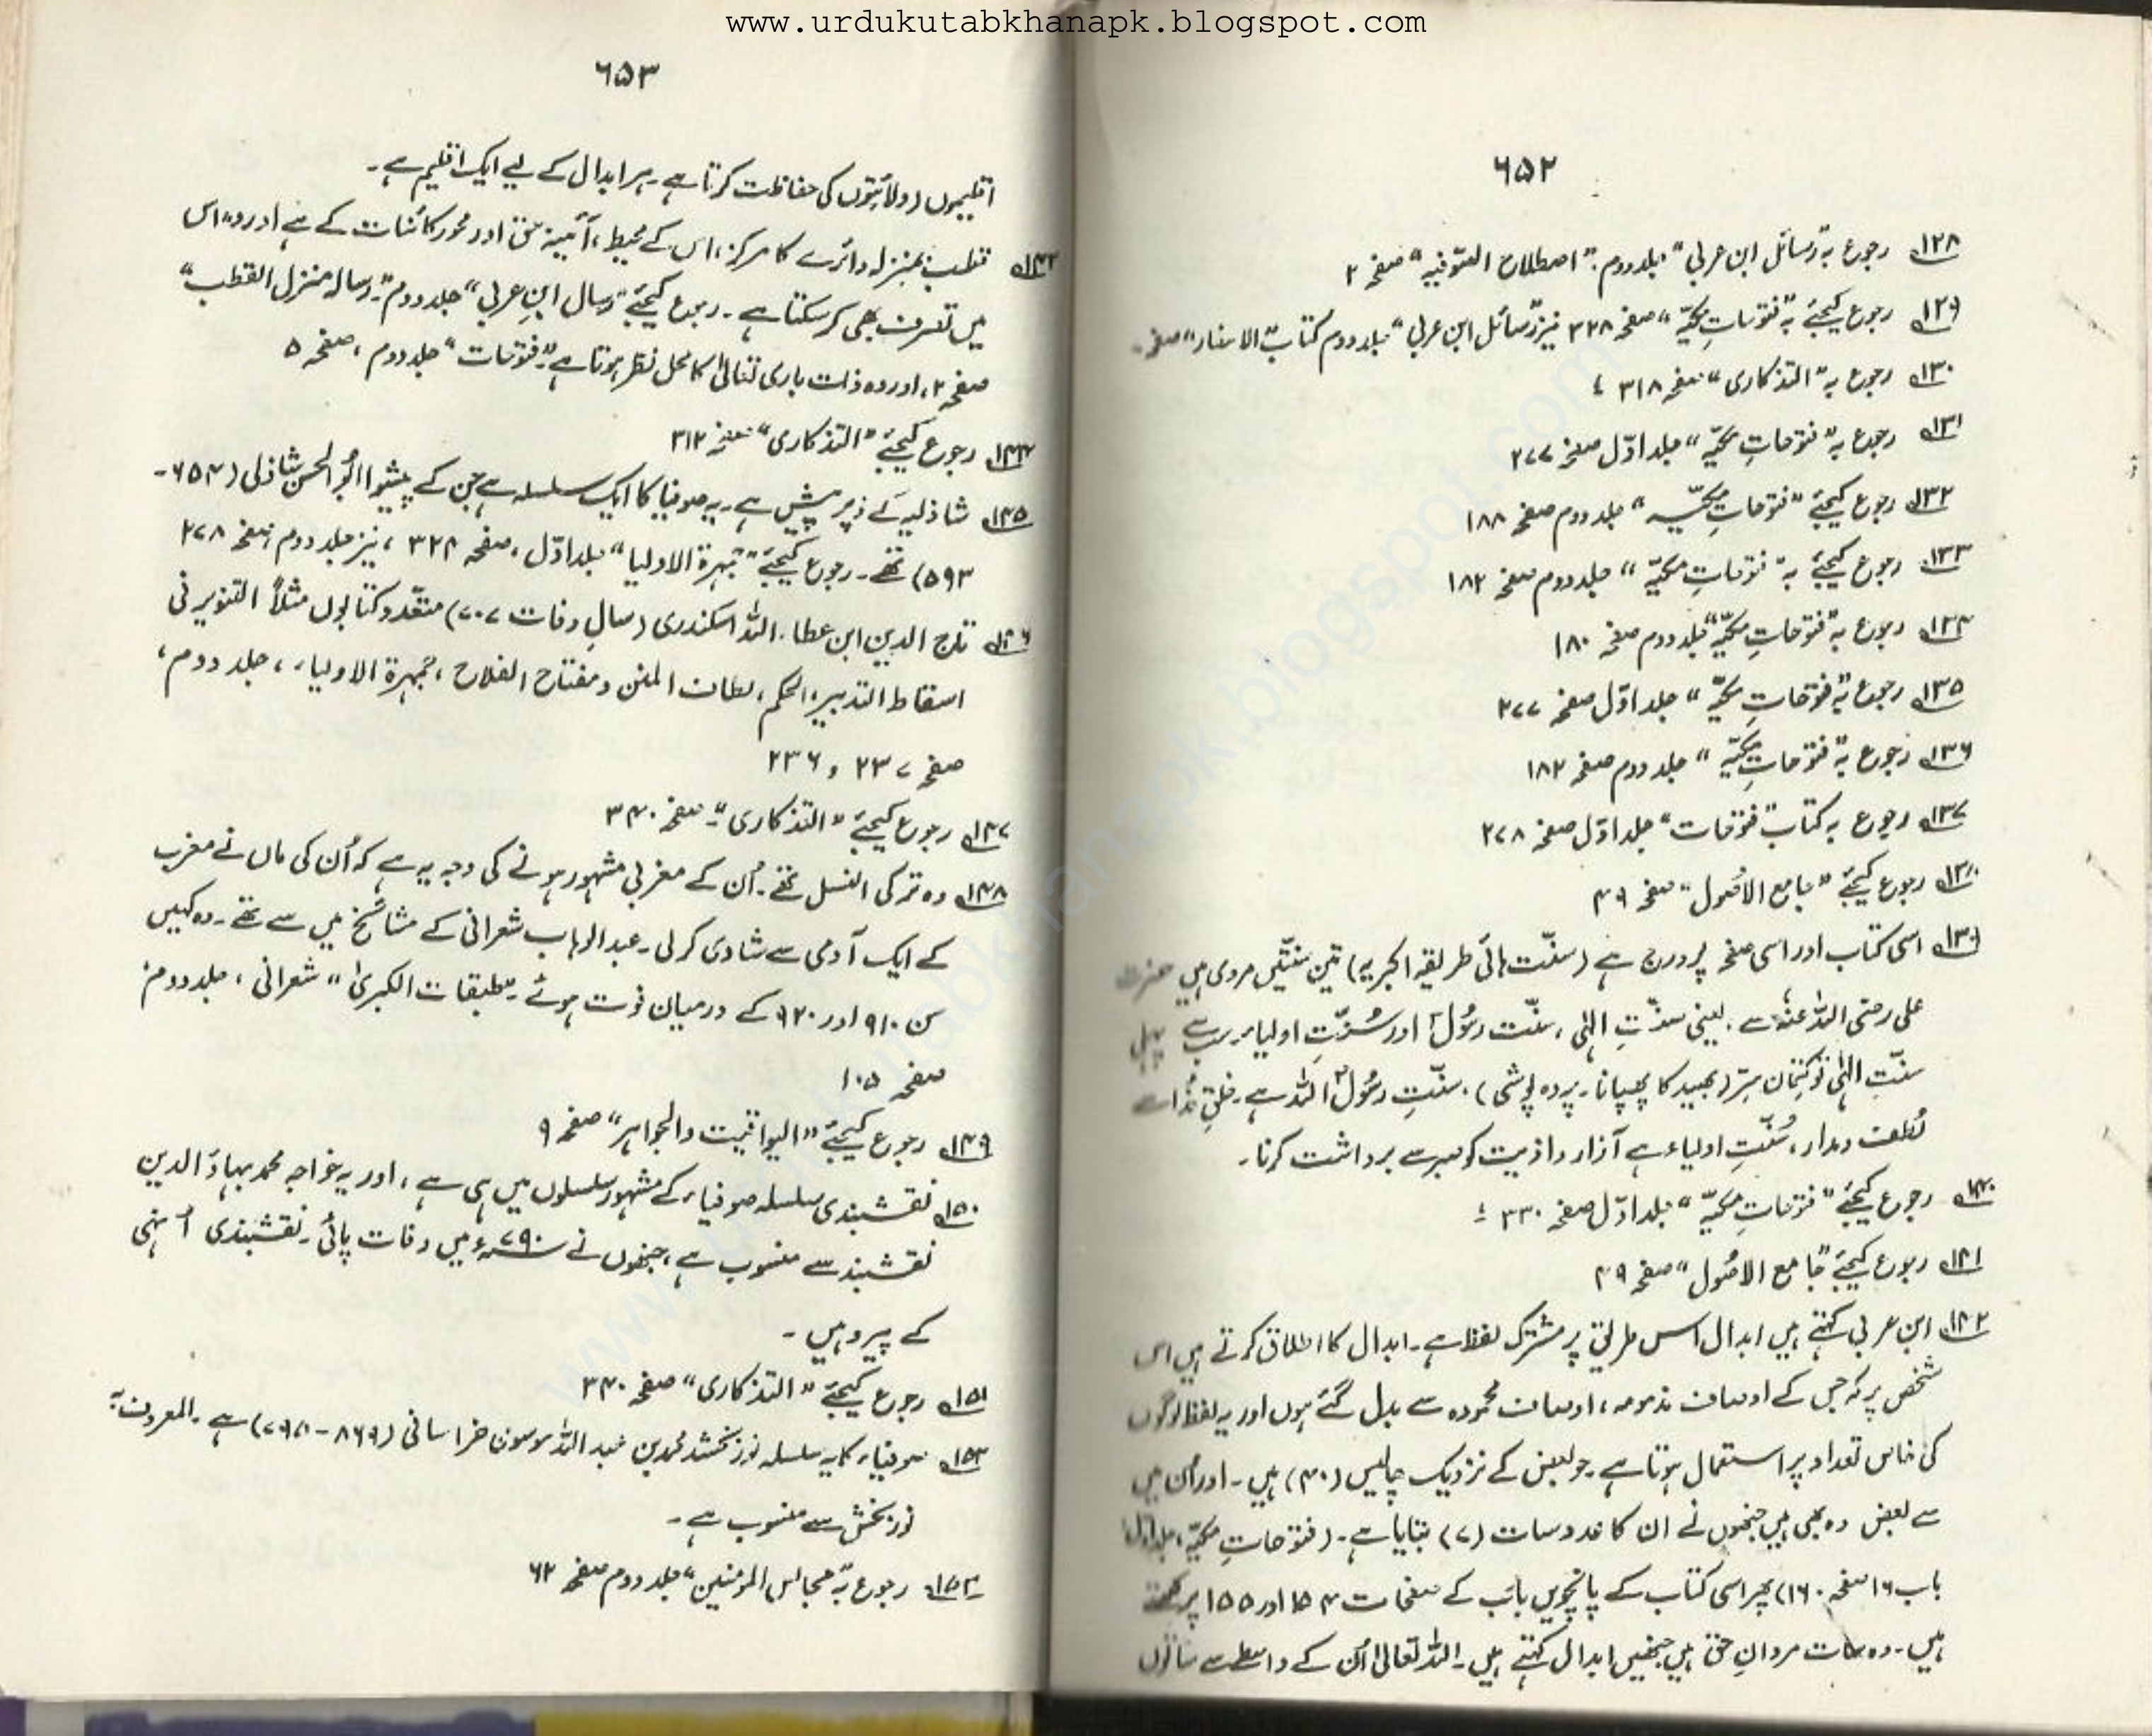 www.urdukutabkhanapk.blogspot.com
۶۵۲
۱۲۸ رجوع بہ ”رسائل ابن عربی“ جلد دوم: ”اصطلاح الصّوفیہ“ صفحہ ۲
۱۲۹ رجوع کیجئے بہ ”فتوحاتِ مکیّہ“ صفحہ ۲۲۸ نیز ”رسائل ابن عربی“ جلد دوم کتاب ”الاسفار“ صفحہ
۱۳۰ رجوع بہ ”التذکاری“ صفحہ ۳۱۸
۱۳۱ رجوع بہ ”فتوحاتِ مکیّہ“ جلد اوّل صفحہ ۲۷۷
۱۳۲ رجوع کیجئے ”فتوحاتِ مکیّہ“ جلد دوم صفحہ ۱۸۸
۱۳۳ رجوع کیجئے بہ ”فتوحاتِ مکیّہ“ جلد دوم صفحہ ۱۸۲
۱۳۴ رجوع بہ ”فتوحاتِ مکیّہ“ جلد دوم صفحہ ۱۸۰
۱۳۵ رجوع بہ ”فتوحاتِ مکیّہ“ جلد اوّل صفحہ ۲۷۷
۱۳۶ رجوع بہ ”فتوحاتِ مکیّہ“ جلد دوم صفحہ ۱۸۲
۱۳۷ رجوع بہ کتاب ”فتوحات“ جلد اوّل صفحہ ۲۷۸
۱۳۸ رجوع کیجئے ”جامع الاصُول“ صفحہ ۴۹
۱۳۹ اسی کتاب اور اسی صفحہ پر درج ہے (سنّت ہائی طریقہ اکبریہ) تین سنّتیں مروی ہیں حضرت
علی رضی اللہ عنہ سے۔ یعنی سنّتِ الہٰی، سنّت رسُولؐ اور سُنّتِ اولیاء۔ سب سے پہلی
سنّتِ الہٰی تو کتمان سِرّ (بھید کا چھپانا۔ پردہ پوشی)۔ سنّتِ رسُولؐ اللہ ہے۔ خلقِ خدا سے
لطف و مدار، سُنّتِ اولیاء ہے آزار و اذیت کو صبر سے برداشت کرنا۔
۱۴۰ رجوع کیجئے ”فتوحاتِ مکیّہ“ جلد اوّل صفحہ ۳۳۰
۱۴۱ رجوع کیجئے ”جامع الاصُول“ صفحہ ۴۹
۱۴۲ ابن عربی کہتے ہیں ابدال اس طریق پر مشترک لفظ ہے۔ ابدال کا اطلاق کرتے ہیں اس
شخص پر کہ جس کے اوصاف مذمومہ، اوصاف محمودہ سے بدل گئے ہوں اور یہ لفظ لوگوں
کی خاص تعداد پر استعمال ہوتا ہے۔ جو بعض کے نزدیک چالیس (۴۰) ہیں۔ اور اُن میں
سے بعض وہ بھی ہیں جنھوں نے ان کا عدد سات (۷) بتایا ہے۔ (فتوحاتِ مکیّہ، جلد اوّل
باب ۱۶ صفحہ ۱۶۰) پھر اسی کتاب کے پانچویں باب کے صفحات ۱۵۴ اور ۱۵۵ پر کہتے
ہیں۔ وہ سات مردانِ حق ہیں جنھیں ابدال کہتے ہیں۔ اللہ تعالیٰ اُن کے واسطے سے ساتوں
۶۵۳
اقلیموں (ولائتوں کی حفاظت کرتا ہے۔ ہر ابدال کے لیے ایک اقلیم ہے۔
۱۴۳ قطب بمنزلہ دائرے کا مرکز، اس کے محیط، آئینہ حق اور محور کائنات کے ہے اور وہ اس
میں تصرف بھی کر سکتا ہے۔ رجوع کیجئے ”رسال ابنِ عربی“ جلد دوم ”رسالہ منزل القطب“
صفحہ ۲، اور وہ ذات باری تعالیٰ کا محل نظر ہوتا ہے۔ ”فتوحات“ جلد دوم، صفحہ ۵
۱۴۴ رجوع کیجئے ”التذکاری“ صفحہ ۳۱۲
۱۴۵ شاذلیہ کے زیر پیش ہے۔ یہ صوفیا کا ایک سلسلہ ہے جن کے پیشوا ابُو الحسن شاذلی (۶۵۴۔
۵۹۳) تھے۔ رجوع کیجئے ”جمہرۃ الاولیا“ جلد اوّل، صفحہ ۳۲۴، نیز جلد دوم، صفحہ ۲۷۸
۱۴۶ تاج الدین ابن عطا، اللہ اسکندری (سالِ وفات ۷۰۷) متعّدد کتابوں مثلاً التنویر فی
اسقاط التدبیر، الحکم، لطائف المنن و مفتاح الفلاح، جمہرۃ الاولیاء، جلد دوم،
صفحہ ۲۳۷ و ۲۳۶
۱۴۷ رجوع کیجئے ”التذکاری“۔ صفحہ ۳۴۰
۱۴۸ وہ ترکی النسل تھے۔ اُن کے مغربی مشہور ہونے کی وجہ یہ ہے کہ اُن کی ماں نے مغرب
کے ایک آدمی سے شادی کر لی۔ عبدالوہاب شعرانی کے مشائخ میں سے تھے۔ وہ کہیں
سن ۹۱۰ اور ۹۲۰ کے درمیان فوت ہوئے۔ ”طبقات الکبریٰ“ شعرانی، جلد دوم
صفحہ ۱۰۵
۱۴۹ رجوع کیجئے ”الیواقیت والجواہر“ صفحہ ۹
۱۵۰ نقشبندی سلسلہ صوفیاء کے مشہور سلسلوں میں ہی سے ہے، اور یہ خواجہ محمد بہاؤ الدین
نقشبند سے منسوب ہے، جنھوں نے ۷۹۰ھ میں وفات پائی۔ نقشبندی اُنہی
کے پیرو ہیں۔
۱۵۱ رجوع کیجئے ”التذکاری“ صفحہ ۳۴۰
۱۵۲ صوفیاء کا یہ سلسلہ نور بخشد محمد بن عبداللہ موسون خراسانی (۸۶۹-۷۹۵) ہے۔ المعروف بہ
نور بخش سے منسوب ہے۔
۱۵۳ رجوع بہ ”مجالس المومنین“ جلد دوم صفحہ ۶۲